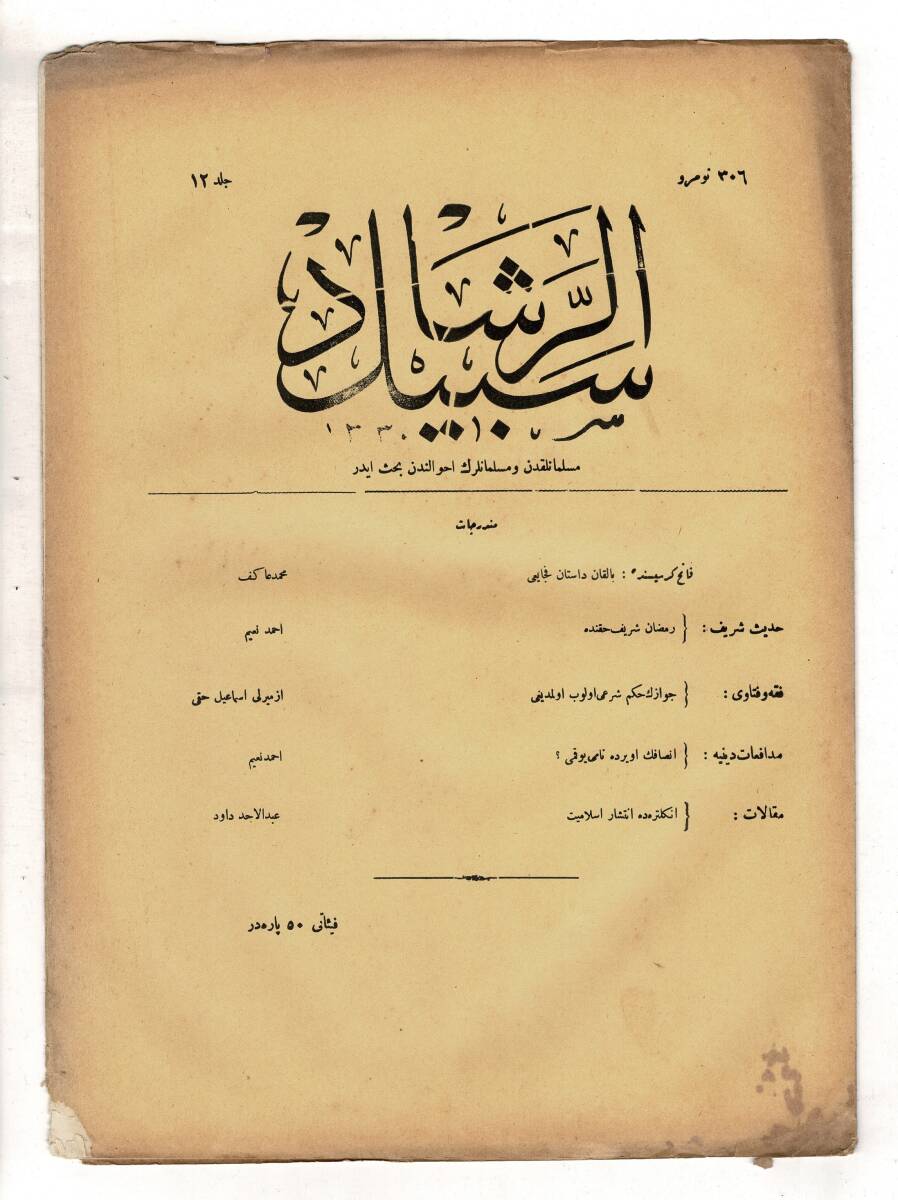 ٣٠٦ نومرو
جلد ١٢
سبیل الرّشاد
١٣٣٠
مسلمانلقدن و مسلمانلرك احوالندن بحث ایدر
مندرجات
فاتح كرسیسنده : بالقان داستان فجایعی محمد عاكف
حدیث شریف : { رمضان شریف حقنده احمد نعیم
فقه و فتاوی : { جوازك حكم شرعی اولوب اولمدیغی ازمیرلی اسماعیل حقی
مدافعات دینیه : { انصافك اویرده نامی یوقمی ؟ احمد نعیم
مقالات : { انكلتره‌ده انتشار اسلامیت عبدالاحد داود
فیئاتی ٥٠ پاره‌در